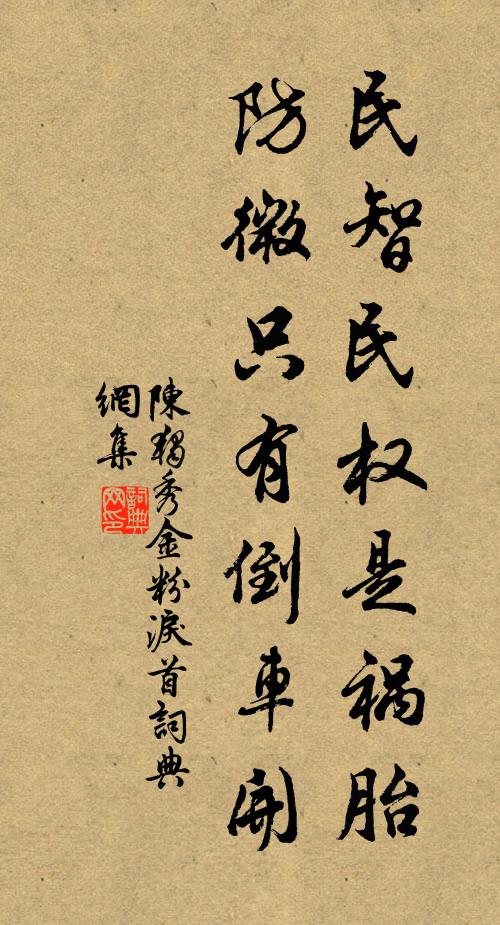 民智民权是祸胎
防微只有倒車開
陳獨秀金粉淚首詞典
網集
詞典
网印